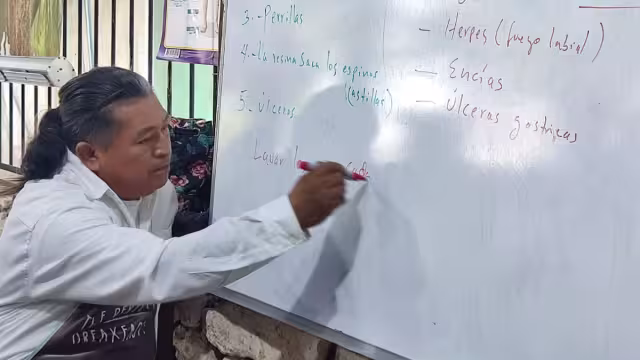 3.- Perrillas
4.- La resina saca los espinos
(astillas)
5.- Úlceras
Lavar
- Herpes (fuego labial)
- Encías
- Úlceras gostricas